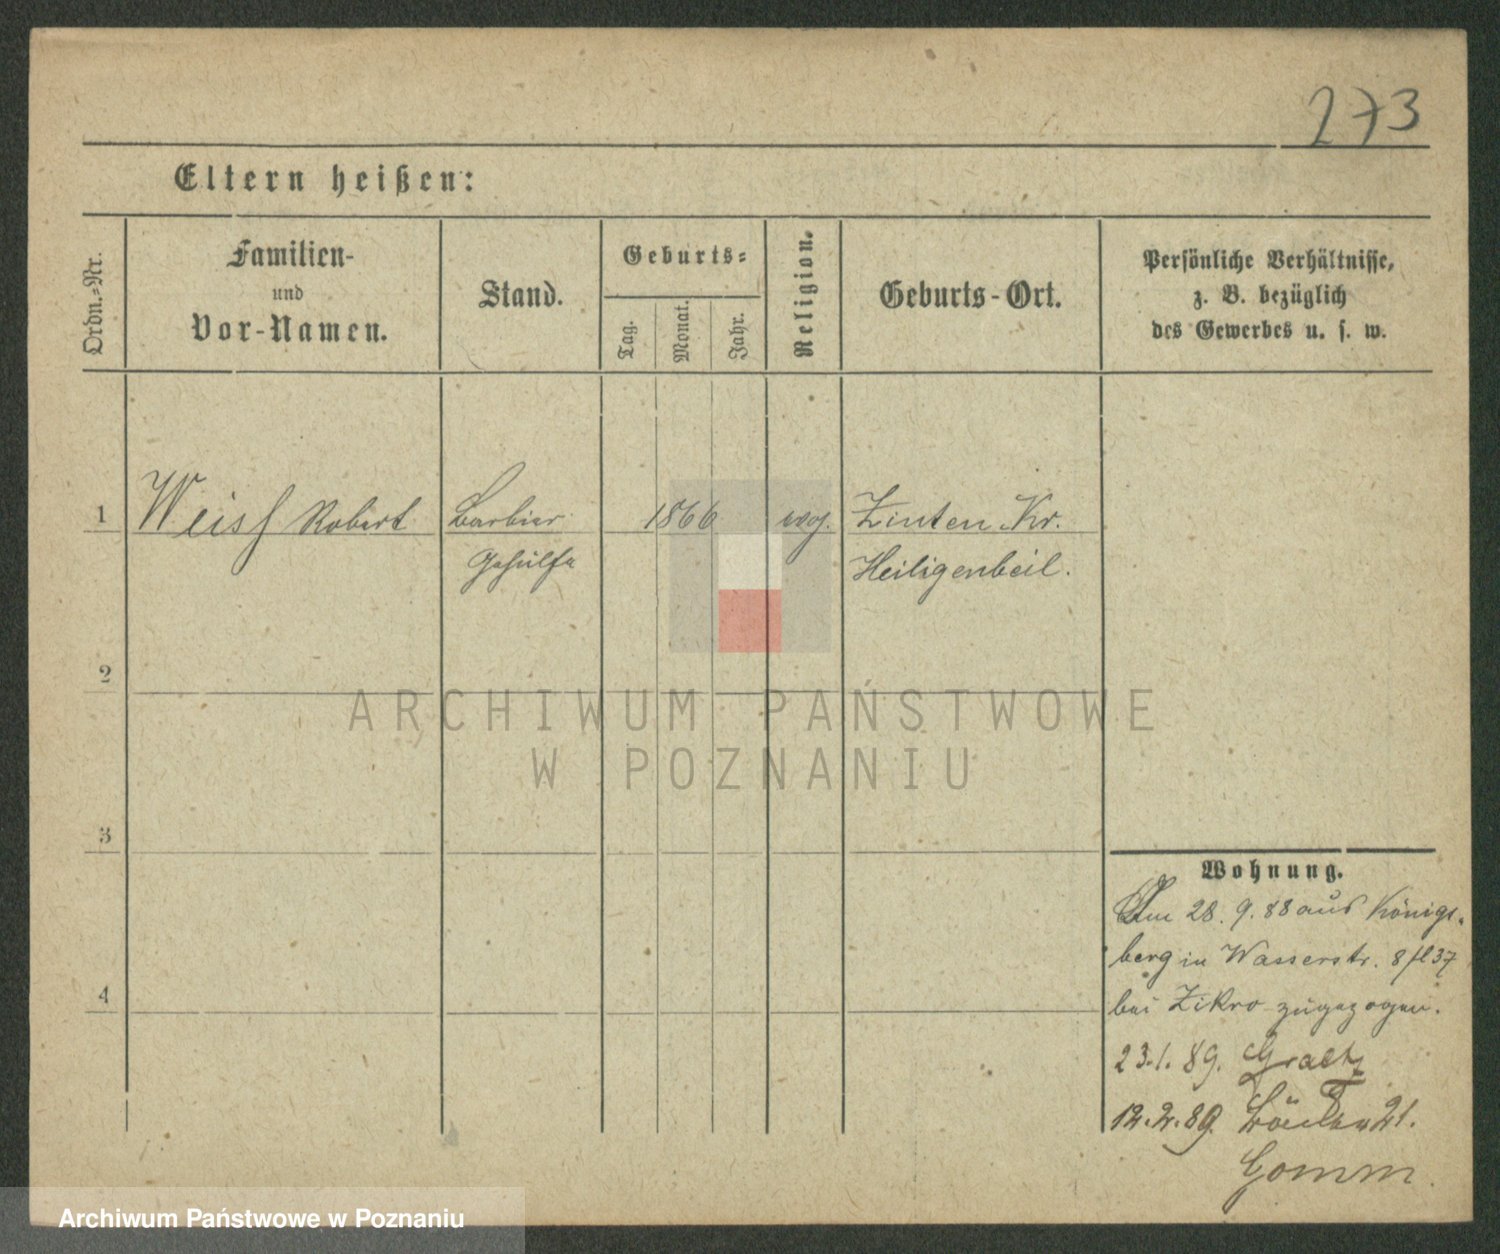 273
Eltern heißen:
Ordn.-Nr.
Familien-
und
Vor-Namen.
Stand.
Geburts-
Tag.
Monat.
Jahr.
Religion.
Geburts-Ort.
Persönliche Verhältnisse,
z. B. bezüglich
des Gewerbes u. s. w.
1 Weiss Robert Barbier 1866 Zinten Kr.
Gehülfe Heiligenbeil.
2
ARCHIWUM PAŃSTWOWE
W POZNANIU
3
Wohnung.
Am 28. 9. 88 aus Königs-
berg in Wasserstr. 8/
bei Zikro zugezogen.
4
23.1.89.
12.2.89. 21.
Gomm
Archiwum Państwowe w Poznaniu